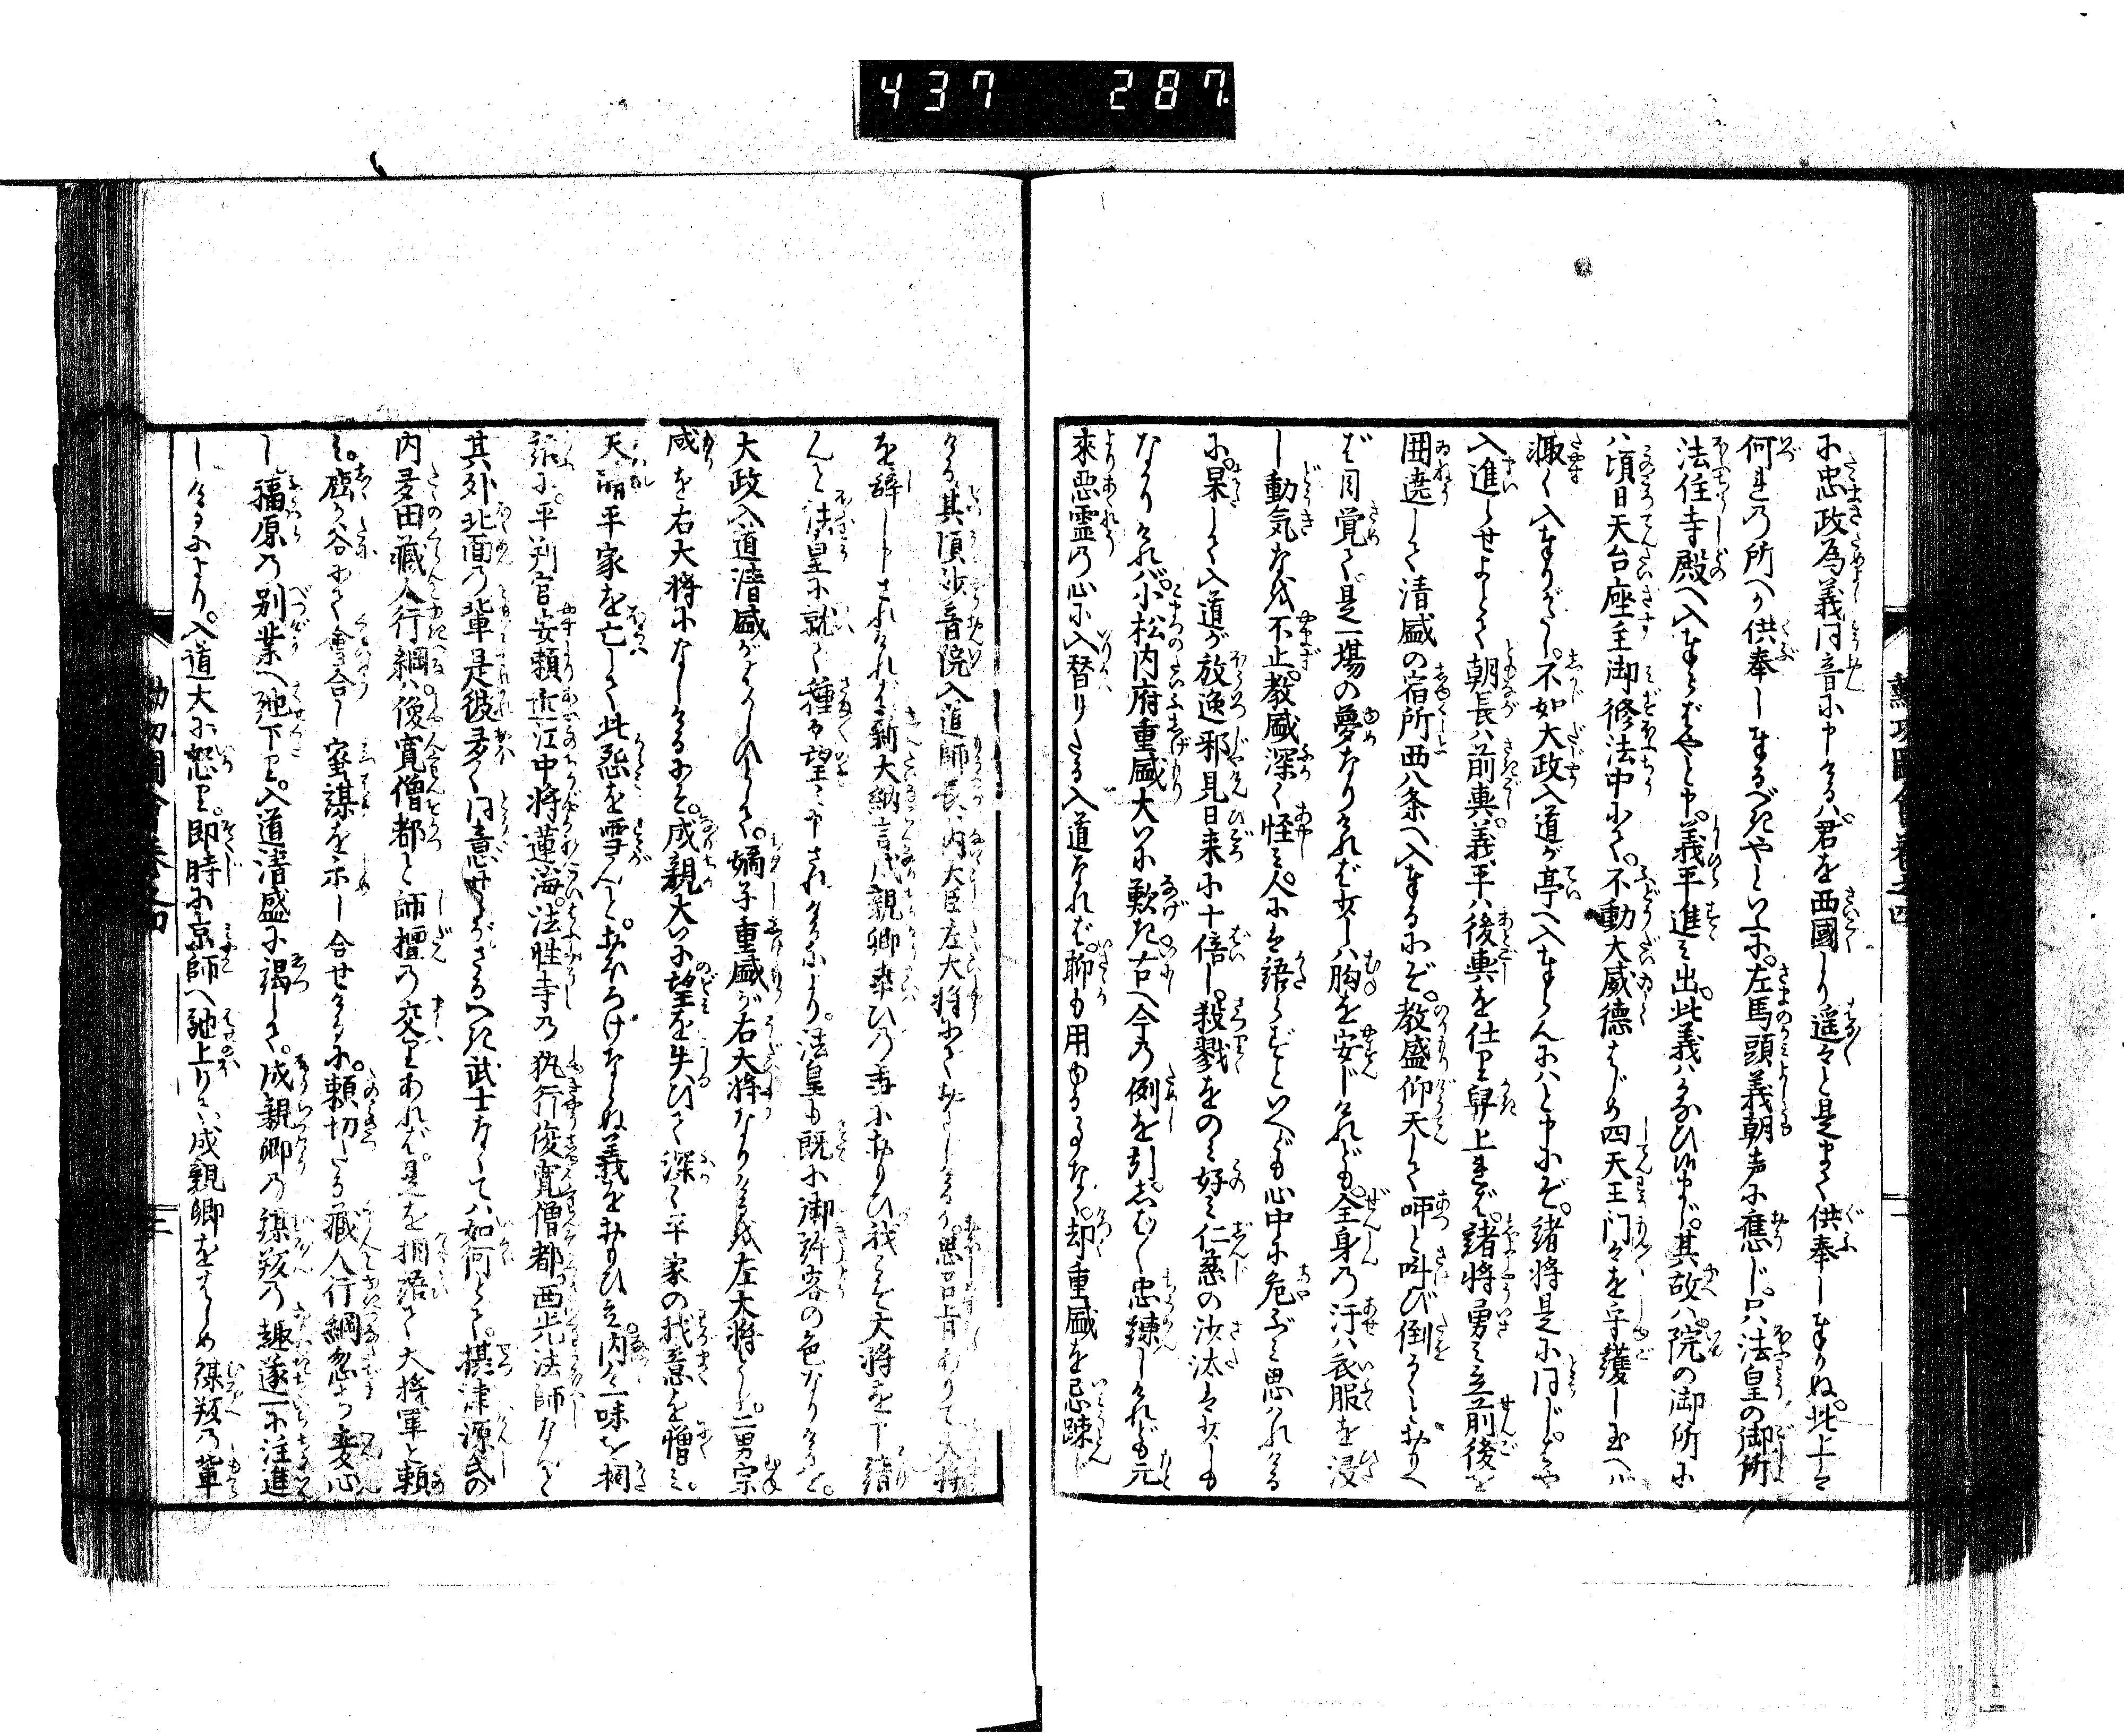 437 287.
に忠政為義同音に申けるハ。君を西國より遥々と是まで供奉しまゐりぬ。此上は
何れの所へか供奉しまゐるべきやといふに。左馬頭義朝声に應じ。只法皇の御所
法住寺殿へ入まゐらばやと申。義平進み出。此義ハ叶ひ候まじ。其故ハ。院の御所に
ハ頃日天台座主御修法中にて。不動大威徳をはじめ四天王門々を守護し玉へバ
輙く入まゐりがたし。不如大政入道が亭へ入まゐらんにハと申にぞ。諸将是に同じ。とうや
入進らせよとて朝長ハ前輿。義平ハ後輿を仕り舁上れば。諸将勇み立前後を
囲遶して清盛の宿所西八条へ入まゐるにぞ。教盛仰天して呀と叫び倒るゝとおもへ
ば目覚て。是一場の夢なりければ少しハ胸を安じけれども。全身の汗ハ衣服を浸
し動気なほ不止。教盛深く怪み。人には語らずといへども心中に危ぶみ思ハれける
に。果して入道が放逸邪見日来に十倍し。殺戮をのみ好み仁慈の沙汰は少しも
なかりければ。小松内府重盛大いに歎き古へ今の例を引。志ばく忠諫しけれども元
來悪霊の心に入替りたる入道なれば。聊も用ゆる事なく。却重盛を忌疎じ
ける。其頃妙音院入道師長。内大臣左大将にておはしけるが。思召旨ありて大将
を辞し申されければ。新大納言成親卿幸ひの事におもひ我こそ大将を申請
んと法皇に就て種々望み申されけるにより。法皇も既に御許容の色なりけるを。
大政入道清盛がはからひとして。嫡子重盛が右大将なりけるを左大将とし。二男宗
盛を右大将になしけるにぞ。成親大いに望を失ひて深く平家の我意を憎み。
天晴平家を亡して此怨を雪んと。おほろけならぬ義をおもひ立。内々一味を相
語に。平判官安頼近江中将蓮海。法勝寺の執行俊寛僧都西光法師なんど
其外北面の輩是彼多く同意せしがさるべき武士なくてハ如何とて。摂津源氏の
内多田藏人行綱ハ俊寛僧都と師檀の交りあれば。是を相語て大将軍と頼
み。鹿が谷にて會合し密謀を示し合せけるに。頼切たる藏人行綱忽ち変心
し福原の別業へ馳下り。入道清盛に謁して。成親卿の謀叛の趣逐一に注進
しけるにより。入道大に怒り。即時に京師へ馳上りて成親卿をはじめ謀叛の輩